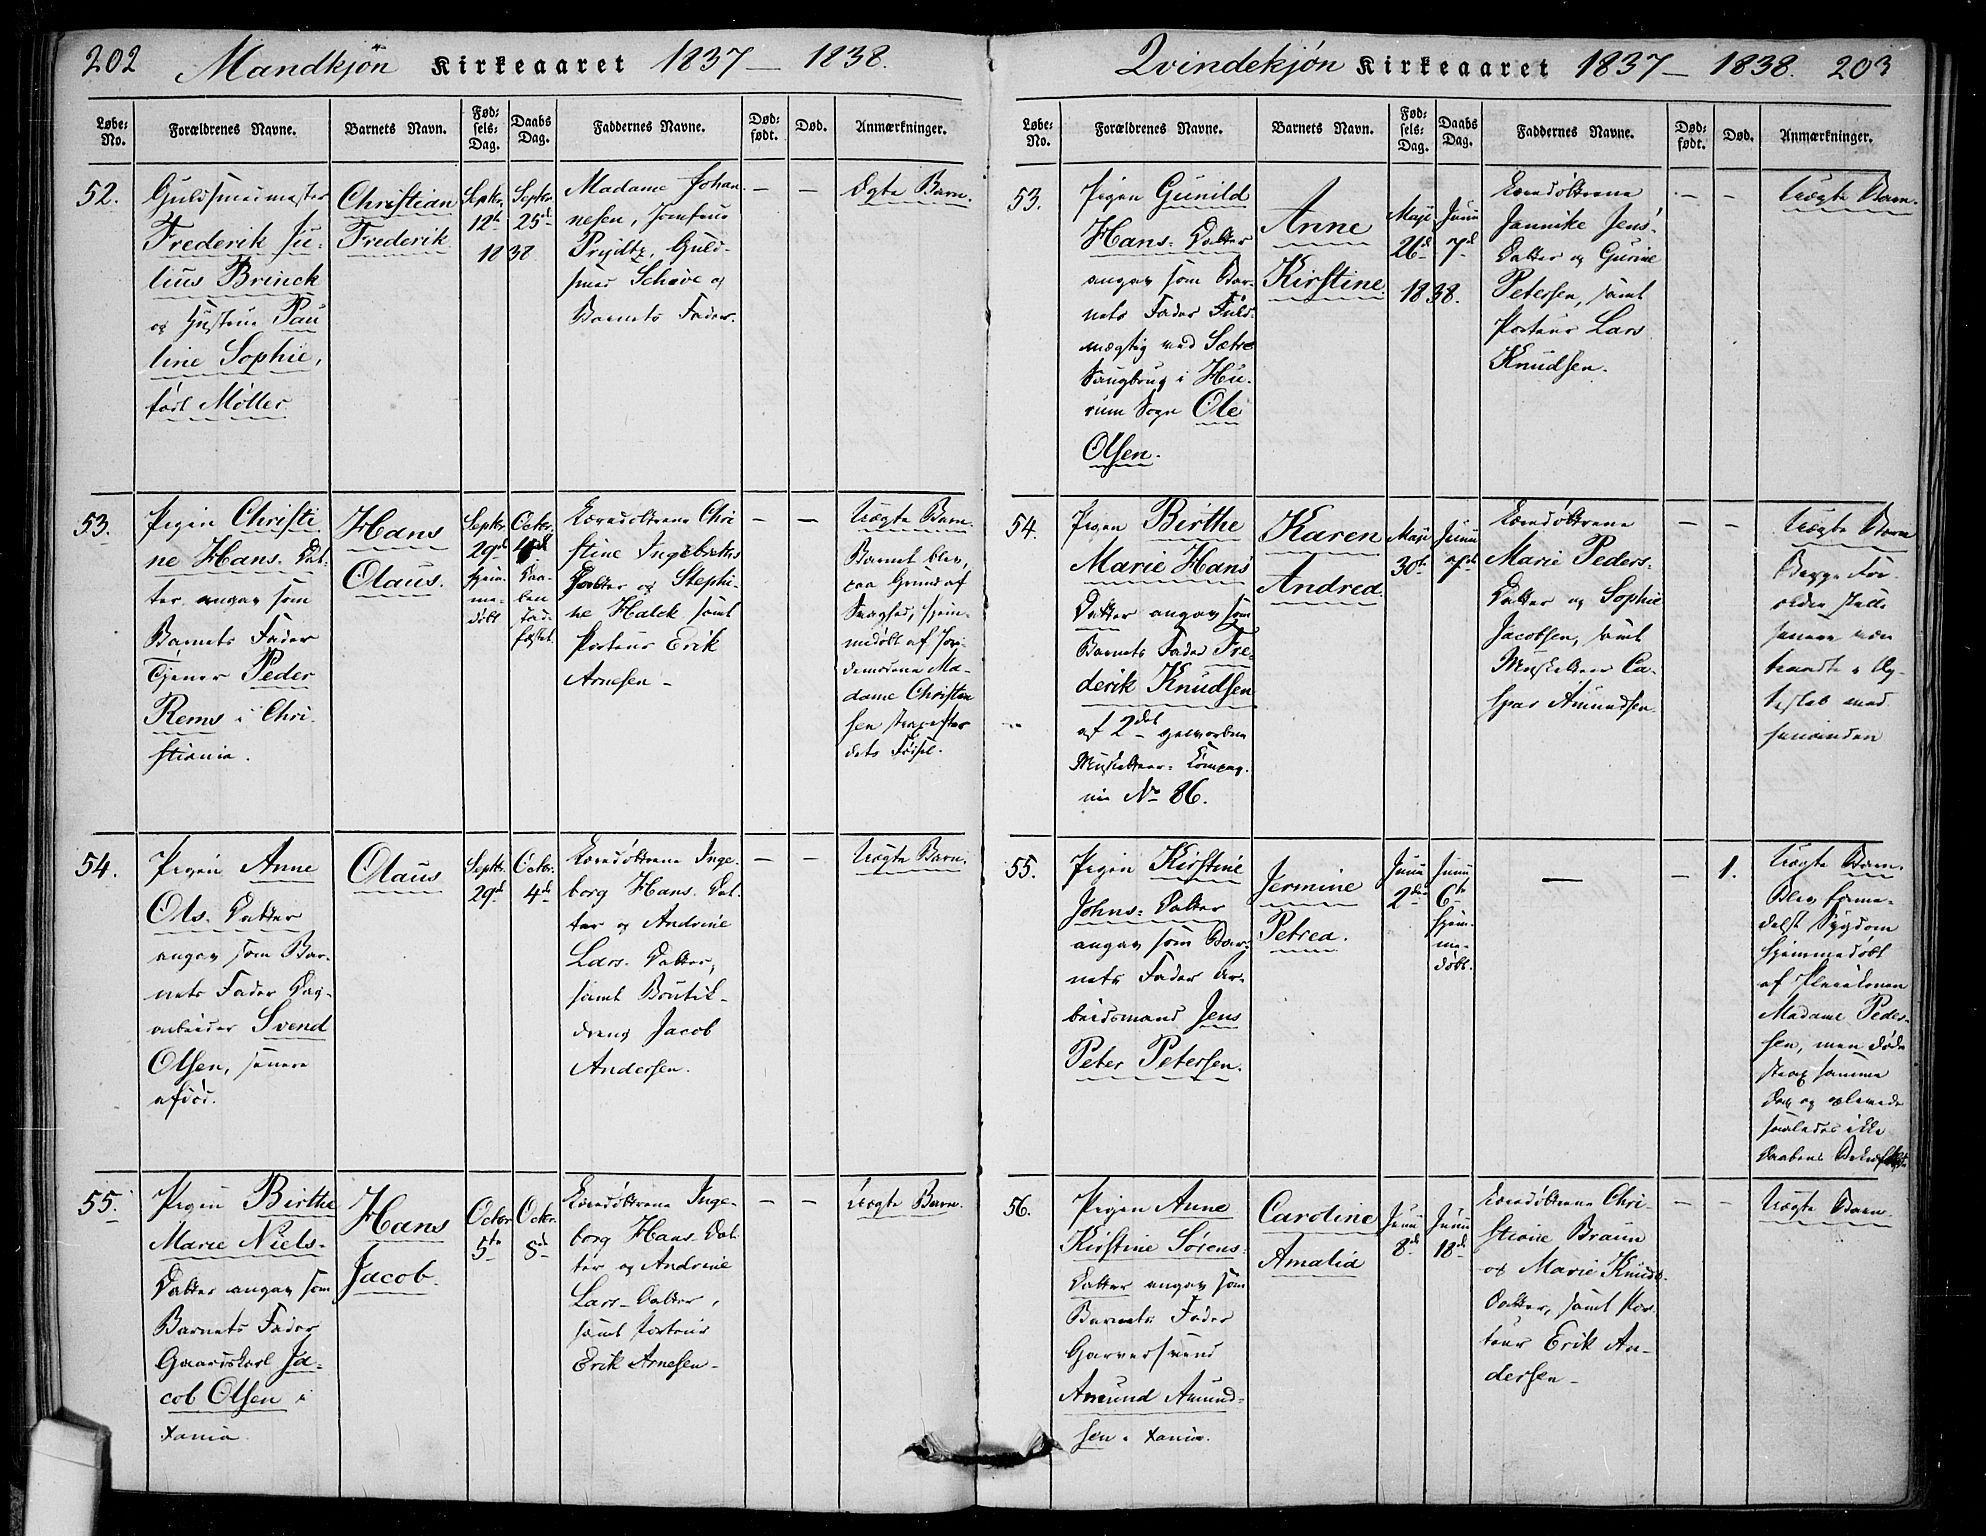 202 Mandkjön Kirkeaaret 1837 – 1838.
Løbe- No. Forældrenes Navne. Barnets Navn. Fødsels- Dag. Daabs Dag. Faddernes Navne. Dødfødt. Død. Anmærkninger.
52.
Guldsmedmester
Frederik Ju-
lius Brinck
og Hustrue Pau
line Sophie,
født Møller
Christian
Frederik
Septbr.
12te
Septbr.
25de
1838
Madame Johan
nesen, Jomfrue
Prydtz, Guld-
smed Schøve og
Barnets Fader.
–
–
Ægte Barn.
53.
Pigen Christi
ne Hans. Dat-
ter angav som
Barnets Fader
Tjener Peder
Rems i Chri-
stiania.
Hans
Olaus.
Septbr.
29de
Hjem-
me-
døbt
Octbr.
Daa-
ben
stad-
fæstet.
Læredøttrene Chri
stine Ingebrets
Datter og Stephi-
ne Halck samt
Porteur Erik
Arnesen –
–
–
Uægte Barn
Barnet blev,
paa Grund af
Svaghed, hjem-
medøbt af Jor-
demoderne Ma-
dame Christen
sen strax efter
dets Fødsel.
54.
Pigen Anne
Ols. Datter
angav som Bar-
nets Fader Dag-
arbeider Svend
Olsen, senere
afdød.
Olaus
Septbr.
29de
Octbr.
4de
Læredøttrene Inge-
borg Hans. Dat-
ter og Andrine
Lars. Datter,
samt Boutik-
dreng Jacob
Andersen.
–
–
Uægte Barn.
55.
Pigen Birthe
Marie Niels-
Datter angav som
Barnets Fader
Gaardskarl Ja-
cob Olsen i
Xania.
Hans
Jacob.
Octbr
5te
Octbr.
8de
Læredøttrene Inge-
borg Hans. Dat-
ter og Andrine
Lars– Datter,
samt Porteur
Erik Arnesen–
–
–
Uægte Barn.
Qvindekjön Kirkeaaret 1837 – 1838. 203
Løbe- No. Forældrenes Navne. Barnets Navn. Fødsels- Dag. Daabs Dag. Faddernes Navne. Dødfødt. Død. Anmærkninger.
53.
Pigen Gunild
Hans= Datter
angav som Bar-
nets Fader Fuld-
mægtig ved Sætre
Saugbrug i Hu-
rum Sogn Ole
Olsen.
Anne
Kirstine.
Maji
26de
Junii
7de
1838.
Læredøttrene
Jannike Jens-
Datter og Gurine
Petersen, samt
Porteur Lars
Knudsen.
–
–
Uægte Barn.
54.
Pigen Birthe
Marie Hans
Datter angav som
Barnets Fader Fre-
derik Knudsen
af 2det gevorbne
Musketteer- Compag-
nie No 86.
Karen
Andrea.
Maji
30te
Junii
7de
Læredøttrene
Marie Peders-
Datter og Sophie
Jacobsen, samt
Musketteer Ca-
spar Amundsen.
–
–
Uægte Barn
Begge For-
ældre skulle
senere være
traadte i Æg-
teskab med
hinanden
55.
Pigen Kirstine
Johns= Datter
angav som Bar-
nets Fader Ar-
beidsmand Jens
Peter Petersen.
Jermine
Petrea.
Junii
2den
Junii
6te
hjem-
me-
døbt.
–
–
1.
Uægte Barn.
Blev forme-
delst Sygdom
hjemmedøbt
af Pleiekonen
Madame Peder-
sen, men døde
strax samme
Dag og oplevede
saaledes ikke
Daabens
56.
Pigen Anne
Kirstine Sørens-
Datter angav som
Barnets Fader
Garversvend
Amund Amund-
sen i Xania.
Caroline
Amalia
Junii
8de
Junii
18de
Læredøttrene Chri-
stiane Braun
og Marie Knuds-
Datter, samt Por-
teur Erik An-
dersen –
–
–
Uægte Barn.